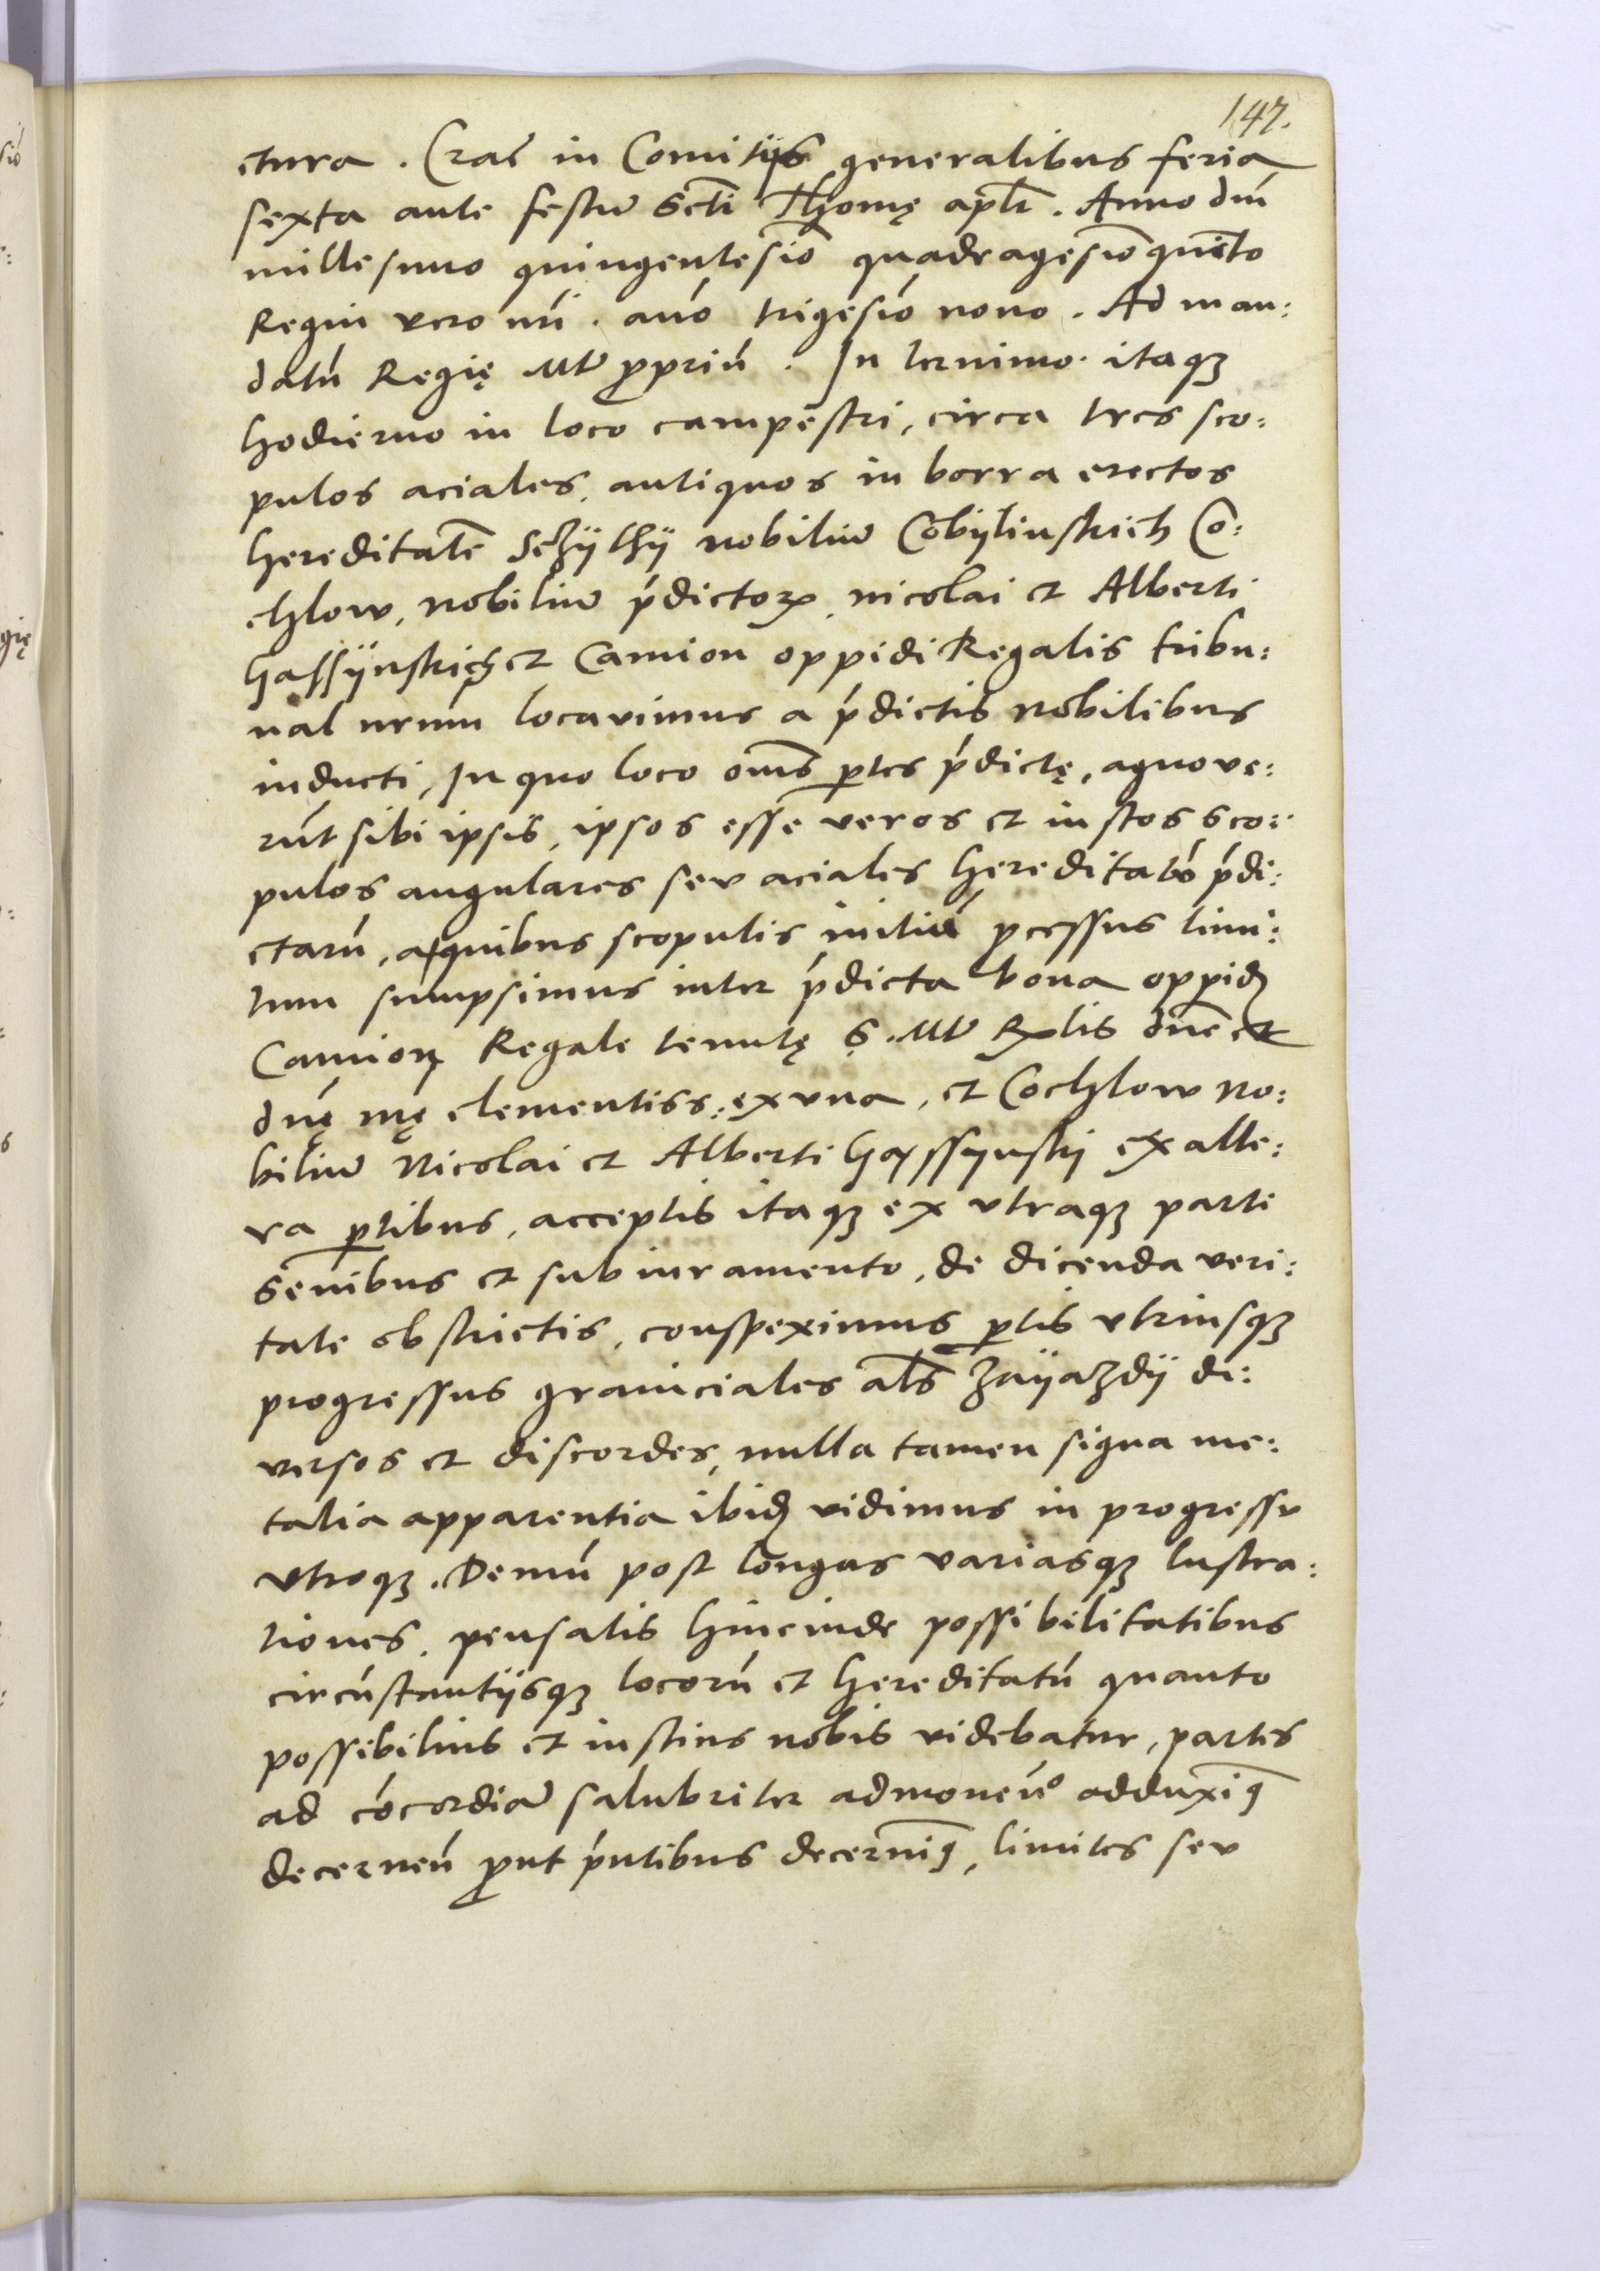 147.
ctura. Crac̄ in Comitijs generalibus feria
sexta ante festū Scti Thomę apli. Anno dni
millesimo quingentesio quadragesio quīto
Regni vero nri. ano trigesio nono. Ad man:
datū Regię Mtis ꝓpriū. In termino itaqꝫ
hodierno in loco campestri, circa tres sco:
pulos aciales, antiquos in borra erectos
hereditatē Sczythy nobiliū Cobylinskich Co:
chlow, nobiliū p̄dictoꝝ, nicolai et Alberti
Gassÿnskich et Camion oppidi Regalis tribu:
nal nrum locavimus a p̄dictis nobilibus
inducti, In quo loco oms ꝑtes p̄dictę, agnove:
rūt sibi ipsis, ipsos esse veros et iustos sco:
pulos angulares seu aciales hereditatū p̄di:
ctarū, a quibus scopulis initiū ꝓcessus limi:
tum sumpsimus inter p̄dicta bona oppidꝫ
Camion Regale tenutę S. Mtis Rlis dnę et
dnę mę clementiss: ex vna, et Cochlow no:
biliū Nicolai et Alberti Gassynsky ex alte:
ra ꝑtibus, acceptis itaqꝫ ex vtraqꝫ parte
senibus et sub iuramento, de dicenda veri:
tate obstrictis, conspeximus ꝑtis vtriusqꝫ
progressus graniciales als Zayazdÿ di:
versos et discordes, nulla tamen signa me:
talia apparentia ibidꝫ vidimus in progressu
vtroqꝫ. Demū post longas variasqꝫ lustra:
tiones, pensatis hincinde possibilitatibus
circūstantijsqꝫ locorū et hereditatū quanto
possibilius et iustius nobis videbatur, partes
ad cōcordiā salubriter admoneńo adduxim9
decerneń ꝓut p̄ntibus decernim9, limites seu